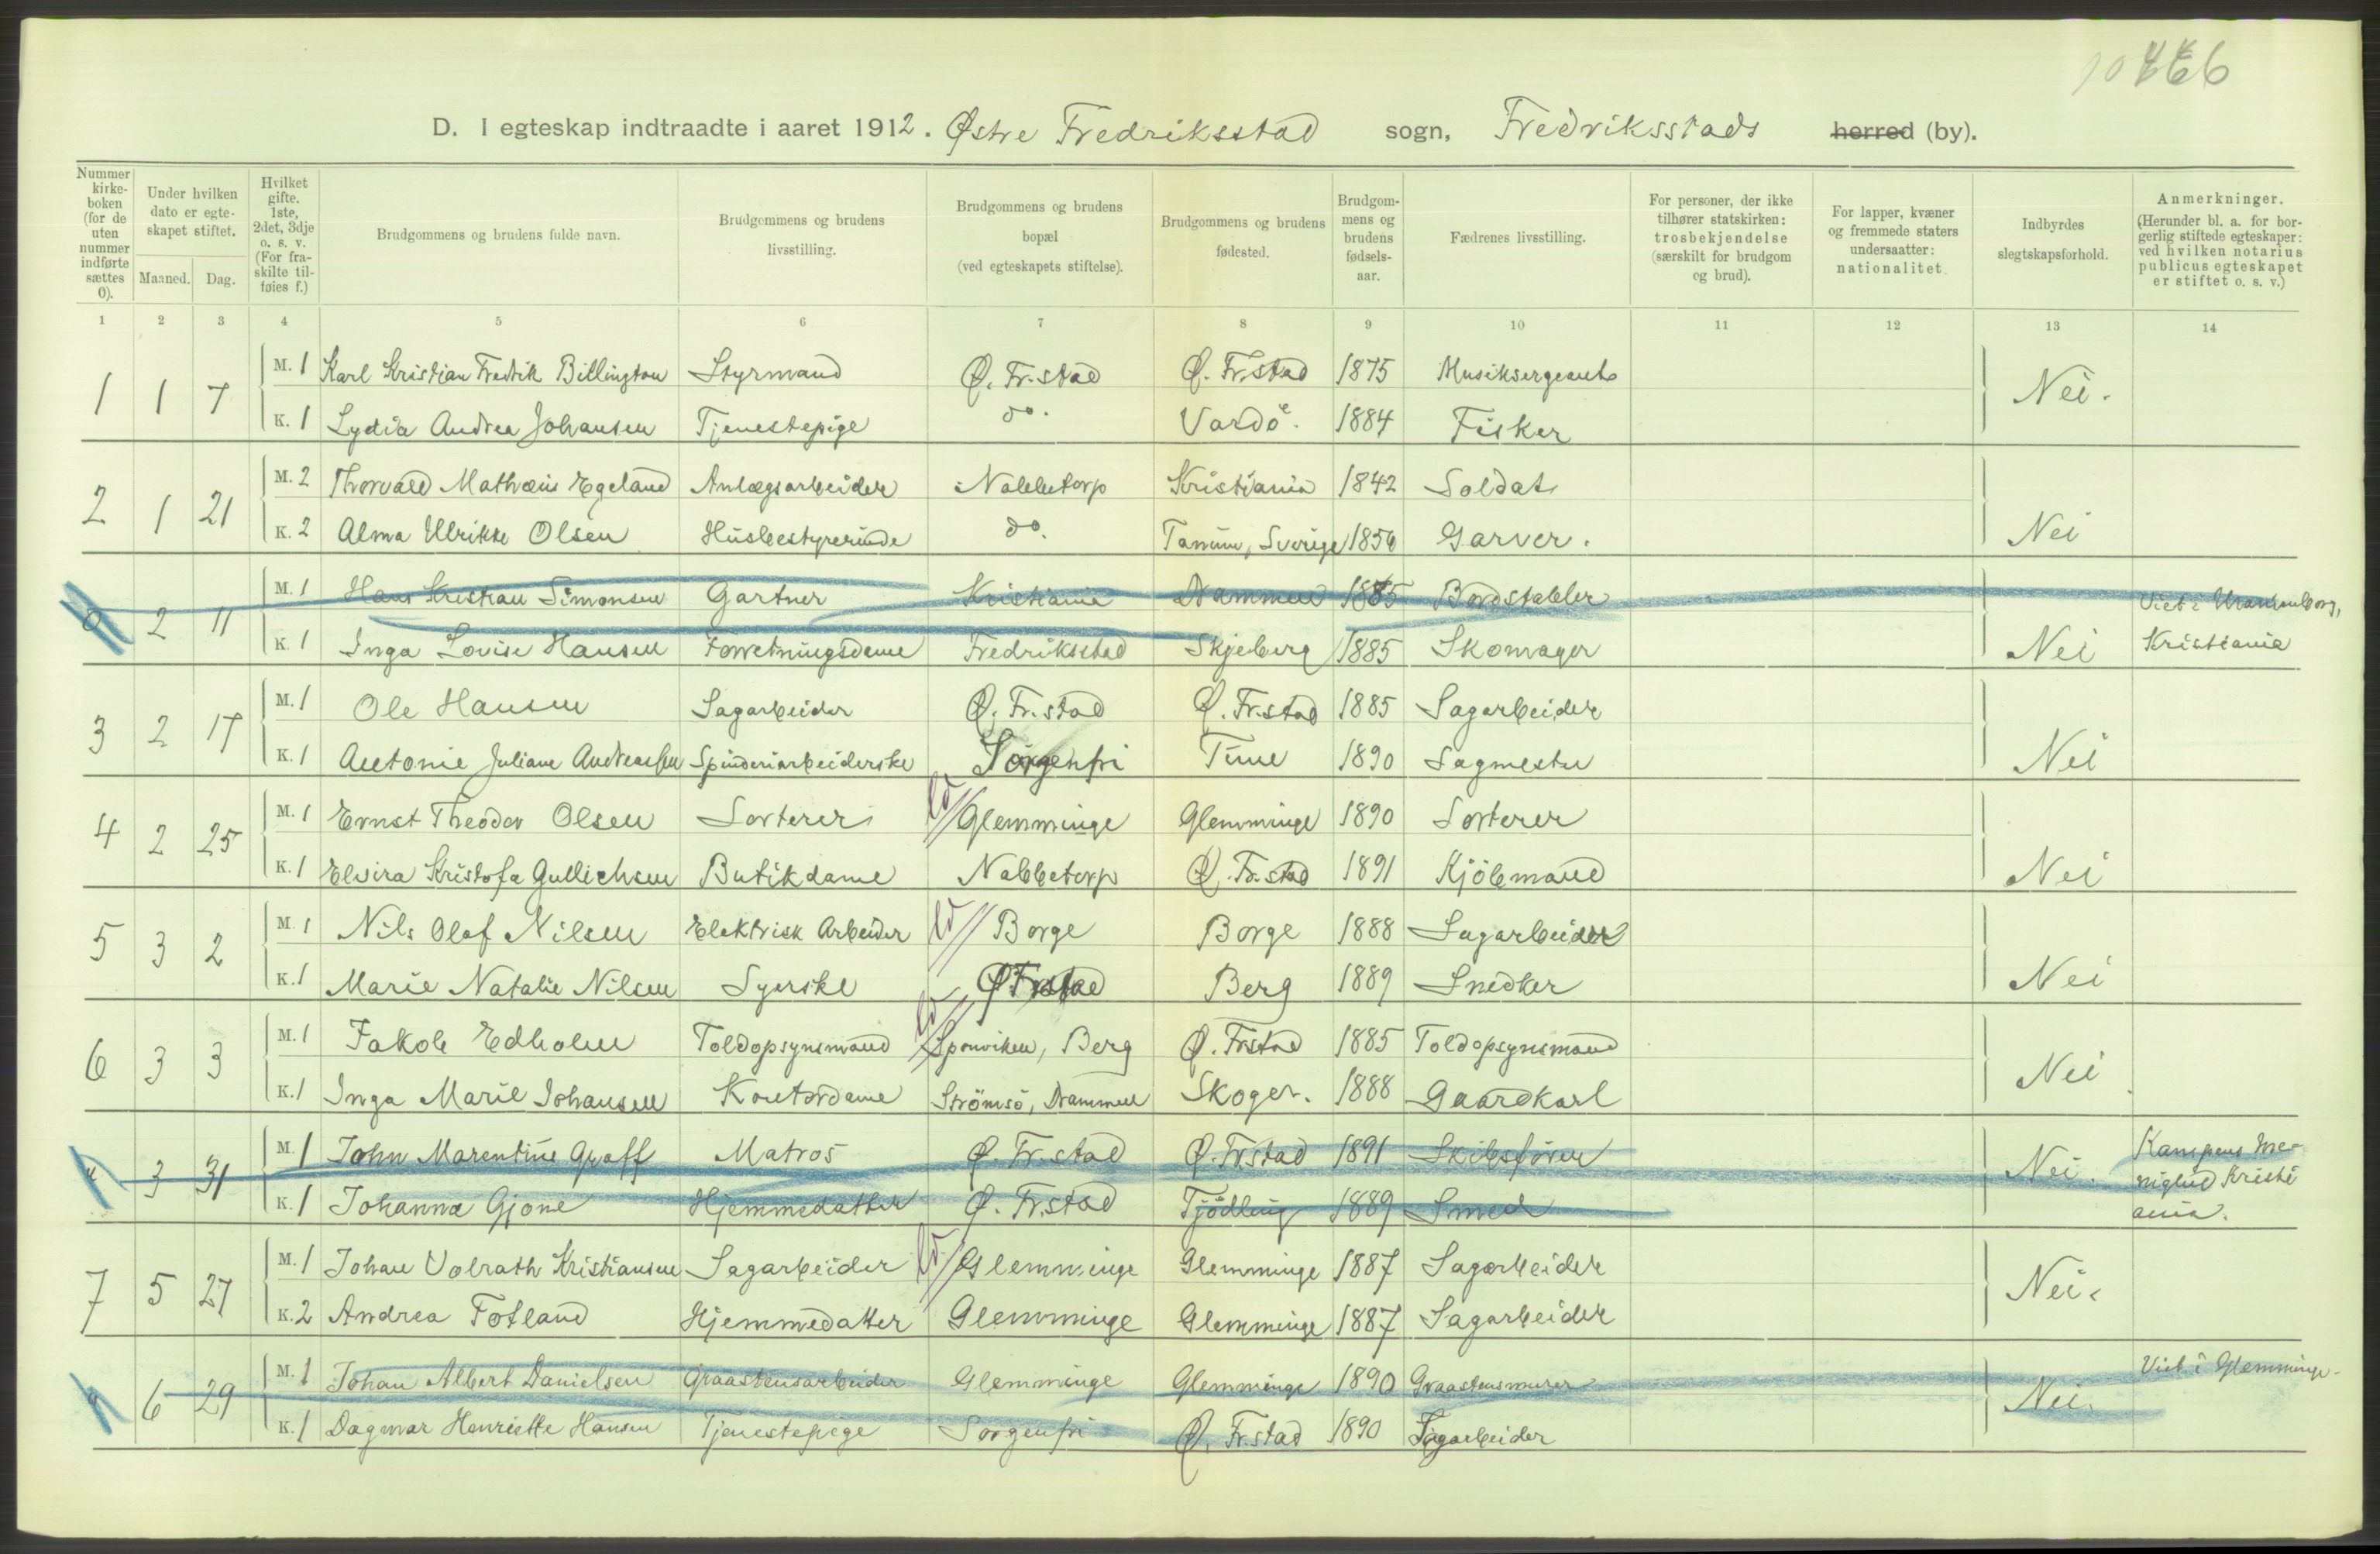 D. I egteskap indtraadte i aaret 1912. Østre Fredriksstad sogn, Fredriksstads herred (by).
Nummer kirkeboken (for de uten nummer indførte sættes 0).
Under hvilken dato er egteskapet stiftet.
Maaned. Dag.
Hvilket gifte. 1ste, 2det, 3dje o. s. v. (For fraskilte tilføies f.)
Brudgommens og brudens fulde navn.
Brudgommens og brudens livsstilling.
Brudgommens og brudens bopæl (ved egteskapets stiftelse).
Brudgommens og brudens fødested.
Brudgommens og brudens fødselsaar.
Fædrenes livsstilling.
For personer, der ikke tilhører statskirken: trosbekjendelse (særskilt for brudgom og brud).
For lapper, kvæner og fremmede staters undersaatter: nationalitet.
Indbyrdes slegtskapsforhold.
Anmerkninger. (Herunder bl. a. for borgerlig stiftede egteskaper: ved hvilken notarius publicus egteskapet er stiftet o. s. v.)
1 2 3 4 5 6 7 8 9 10 11 12 13 14
1 1 7 M. 1 Karl Kristian Fredrik Billington Styrmand Ø. Fr.stad Ø. Fr.stad 1875 Musiksergeant Nei.
K. 1 Lydia Andrea Johansen Tjenestepige do. Vardö. 1884 Fisker
2 1 21 M. 2 Thorvald Mathæus Egeland Anlægsarbeider Nabbetorp Kristiania 1842 Soldat Nei
K. 2 Alma Ulrikke Olsen Husbestyrerinde do. Tanum, Sverige 1856 Garver.
0 2 11 M. 1 Hans Kristian Simonsen Gartner Kristiania Drammen 1885 Bordstabler Viet i Uranienborg,
K. 1 Inga Lovise Hansen Forretningsdame Fredriksstad Skjeberg 1885 Skomager Nei Kristiania
3 2 17 M. 1 Ole Hansen Sagarbeider Ø. Fr.stad Ø. Fr.stad 1885 Sagarbeider Nei
K. 1 Antonie Juliane Andreassen Spinderiarbeiderske Sorgenfri Tune 1890 Sagmester
4 2 25 M. 1 Ernst Theodor Olsen Sorterer Glemminge Glemminge 1890 Sorterer Nei
K. 1 Elvira Kristofa Gullichsen Butikdame Nabbetorp Ø. Fr.stad 1891 Kjöbmand
5 3 2 M. 1 Nils Olaf Nilsen Elektrisk Arbeider Borge Borge 1888 Sagarbeider Nei
K. 1 Marie Natalie Nilsen Syerske Ø Frstad Berg 1889 Snedker
6 3 3 M. 1 Jakob Edholm Toldopsynsmand Sponviken, Berg Ø. Frstad 1885 Toldopsynsmand Nei
K. 1 Inga Marie Johansen Kontordame Strömsö, Drammen Skoger. 1888 Gaardkarl
" 3 31 M. 1 John Marentius Graff Matros Ø. Fr.stad Ø. Frstad 1891 Skibsförer Nei. Kampens Me-
nighed Kristi
K. 1 Johanna Gjone Hjemmedatter Ø. Fr.stad Tjödling 1889 Smed ania.
7 5 27 M. 1 Johan Volrath Kristiansen Sagarbeider Glemminge Glemminge 1887 Sagarbeider Nei.
K. 2 Andrea Fotland Hjemmedatter Glemminge Glemminge 1887 Sagarbeider
" 6 29 M. 1 Johan Albert Danielsen Graastensarbeider Glemminge Glemminge 1890 Graastensmurer Nei. Viet i Glemminge.
K. 1 Dagmar Henriette Hansen Tjenestepige Sorgenfri Ø. Fr.stad 1890 Sagarbeider